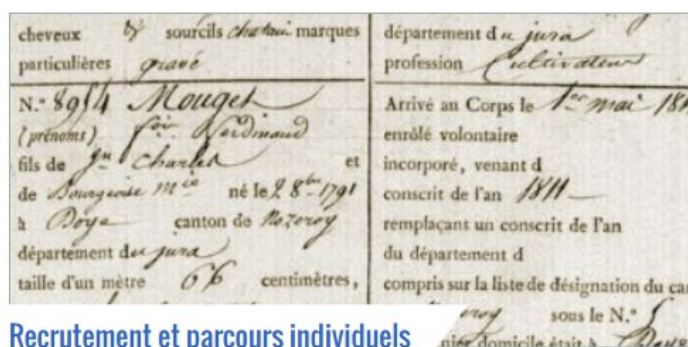 cheveux & sourcils chatain marques
particulières gravé
N.° 8954 Mouget
(prénoms) foi. Ferdinand
fils de Jn Charles et
de Bourgeoise Mie né le 28bre 1791
à Doye canton de Nozeroy
département du jura
taille d'un mètre 66 centimètres,
département du jura
profession Cultivateur
Arrivé au Corps le 1er mai 181
enrôlé volontaire
incorporé, venant d
conscrit de l'an 1811
remplaçant un conscrit de l'an
du département d
compris sur la liste de désignation du can
sous le N.°
domicile était à Doye
Recrutement et parcours individuels